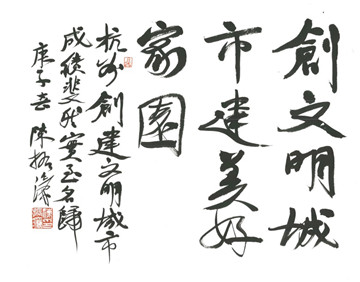 創文明城
市建美好
家園
杭州創建文明城市
成绩斐然實至名歸
庚子春 陳振濂